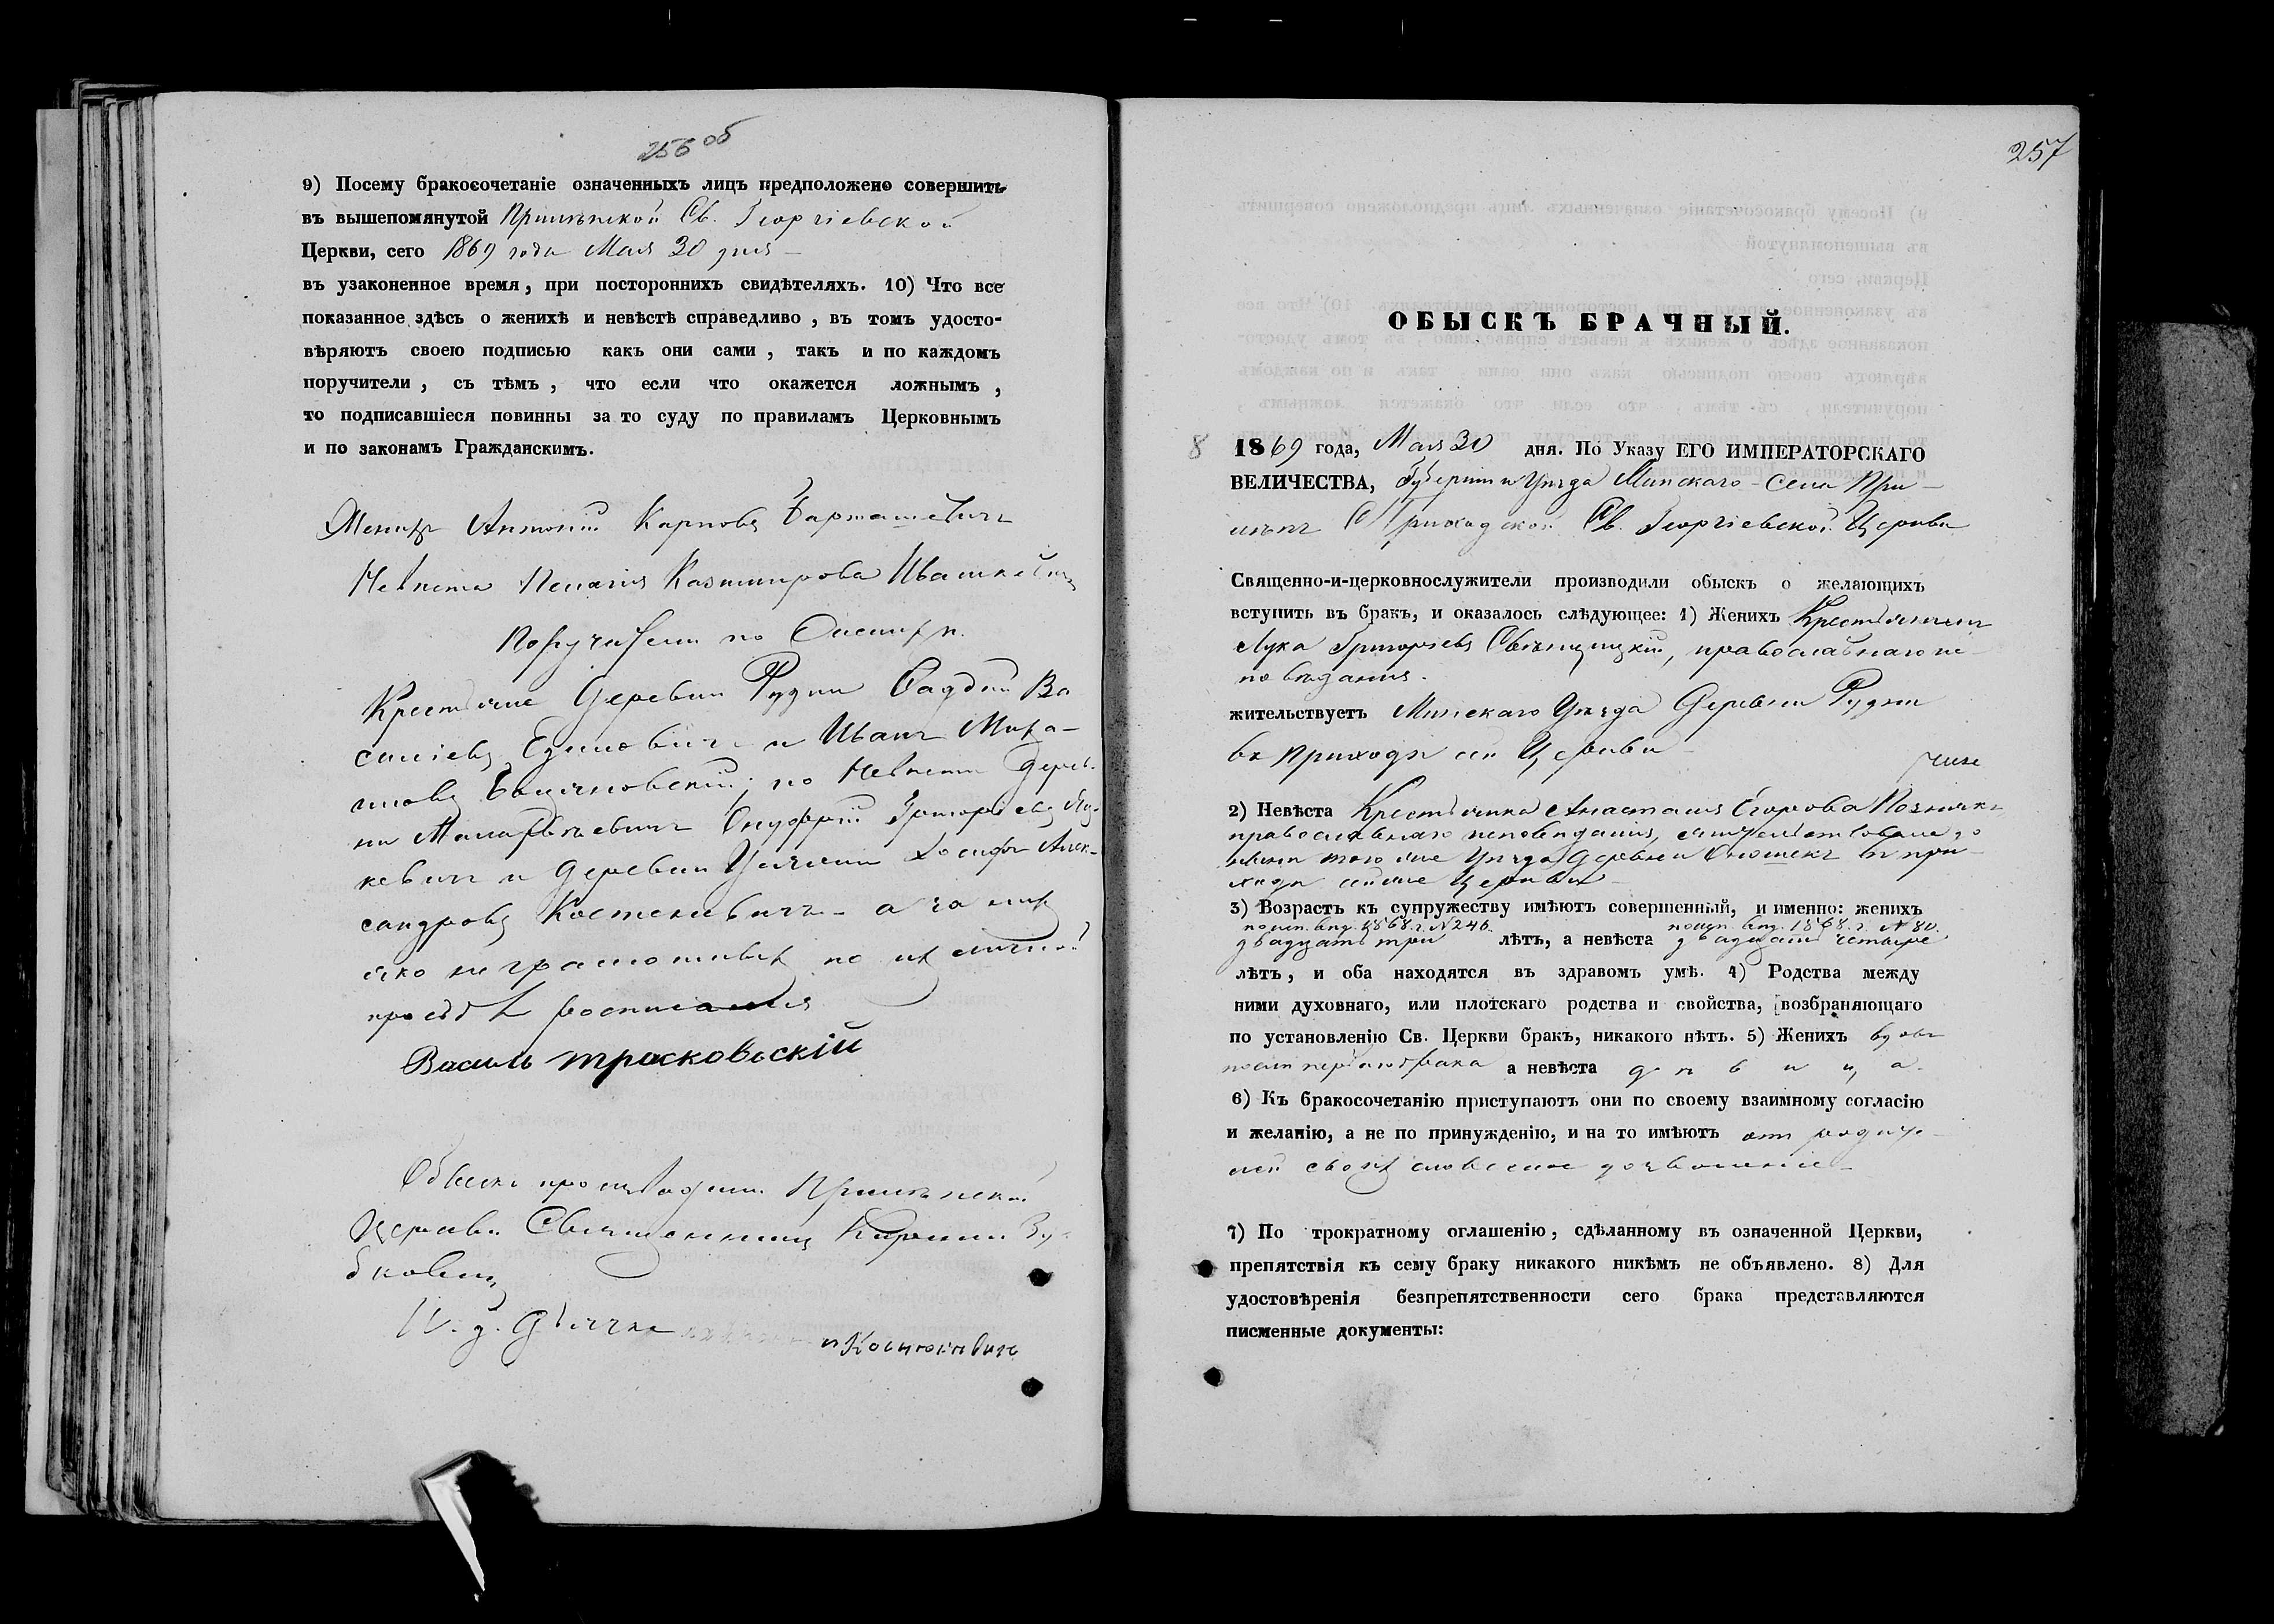 256 об
9) Посему бракосочетаніе означенныхъ лицъ предположено совершить
въ вышепомянутой Прилѣпской Св. Георгіевской
Церкви, сего 1869 года Мая 30 дня –
въ узаконенное время, при постороннихъ свидѣтеляхъ. 10) Что все
показанное здѣсь о женихѣ и невѣстѣ справедливо, въ томъ удосто-
вѣряютъ своею подписью какъ они сами, такъ и по каждомъ
поручители, съ тѣмъ, что если что окажется ложнымъ,
то подписавшіеся повинны за то суду по правиламъ Церковнымъ
и по законамъ Гражданскимъ.
Женихъ Антоній Карповъ Барташевичъ
Невѣста Пелагія Казимирова
Поручители по Женихѣ
Крестьяне Деревни Рудни Ва
силіевъ и Иванъ
по Невѣстѣ Дерев-
ни Онуфрій Григорьевъ
кевичъ и Деревни Іосифъ Алек-
сандровъ а за нихъ
яко неграмотныхъ по их личной
просьбѣ росписался
Василь Трасковьскій
Обыскъ производили Прилѣпской
Церкви Священникъ
бковичъ
И. д. Дьячка
257
ОБЫСКЪ БРАЧНЫЙ.
8 1869 года, Мая 30 дня. По Указу ЕГО ИМПЕРАТОРСКАГО
ВЕЛИЧЕСТВА, Губерніи и Уѣзда Минскаго – Села При-
лѣпъ Приходской Св. Георгіевской Церкви
Священно-и-церковнослужители производили обыскъ о желающихъ
вступить въ бракъ, и оказалось слѣдующее: 1) Женихъ Крестьянинъ
Лука Григорьевъ православнаго ис-
повѣданія.
жительствуетъ Минскаго Уѣзда Деревни Рудни
въ приходѣ сей Церкви –
2) Невѣста Крестьянка Анастасія Егорова
православнаго исповѣданія, жительствовала до
того же Уѣзда Деревни въ при-
ходѣ сей же Церкви –
3) Возрастъ къ супружеству имѣютъ совершенный, и именно: женихъ
посп. вѣд. 1868 г. № 246. посп. вѣд. 1868. г. № 80.
двадцать три лѣтъ, а невѣста двадцать четыре
лѣтъ, и оба находятся въ здравомъ умѣ. 4) Родства между
ними духовнаго, или плотскаго родства и свойства, возбраняющаго
по установленію Св. Церкви бракъ, никакого нѣтъ. 5) Женихъ вдовъ
послѣ перваго брака а невѣста дѣвица.
6) Къ бракосочетанію приступаютъ они по своему взаимному согласію
и желанію, а не по принужденію, и на то имѣютъ отъ родите-
лей своихъ словесное дозволеніе –
7) По трократному оглашенію, сдѣланному въ означенной Церкви,
препятствія къ сему браку никакого никѣмъ не объявлено. 8) Для
удостовѣренія безпрепятственности сего брака представляются
писменные документы: